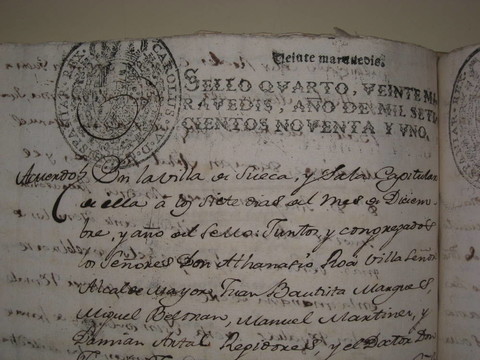 Veinte maravedis.
CAROLUS IV D. HISPANIAR. REX
SELLO QVARTO, VEINTE MA
RAVEDIS, AÑO DE MIL SETE
CIENTOS NOVENTA Y VNO.
Acuerdo En la Villa de Sueca, y Sala Capitular
de ella á los siete dias del Mes de Diciem-
bre, y año del sello: Juntos y congregados
los Señores Don Athanasio Roa Villa Señor
Alcalde Mayor, Juan Bautista Marques,
Miguel Beltran, Manuel Martinez, y
Damian Artal Regidores y el Doctor Don